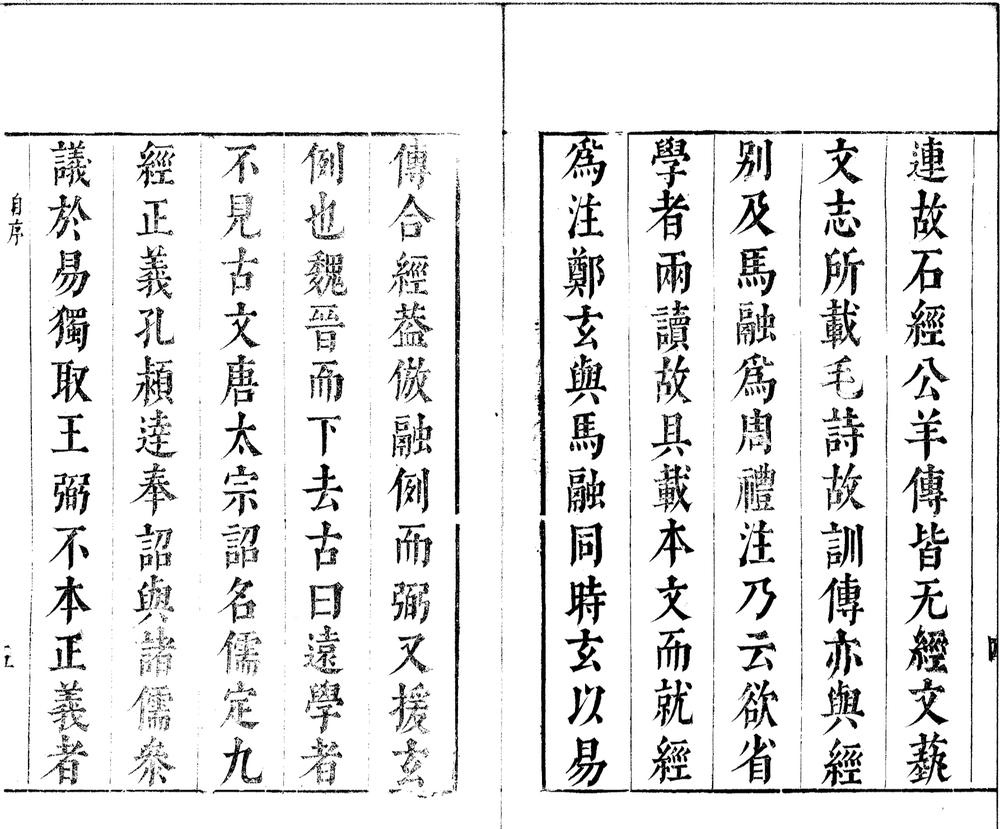 連故石經公羊傳皆无經文藝
文志所載毛詩故訓傳亦與經
别及馬融爲周禮注乃云欲省
學者兩讀故具載本文而就經
爲注鄭玄與馬融同時玄以易
傳合經葢倣融例而弼又援玄
例也魏晉而下去古曰遠學者
不見古文唐太宗詔名儒定九
經正義孔頴達奉詔與諸儒叅
議於易獨取王弼不本正義者
自序